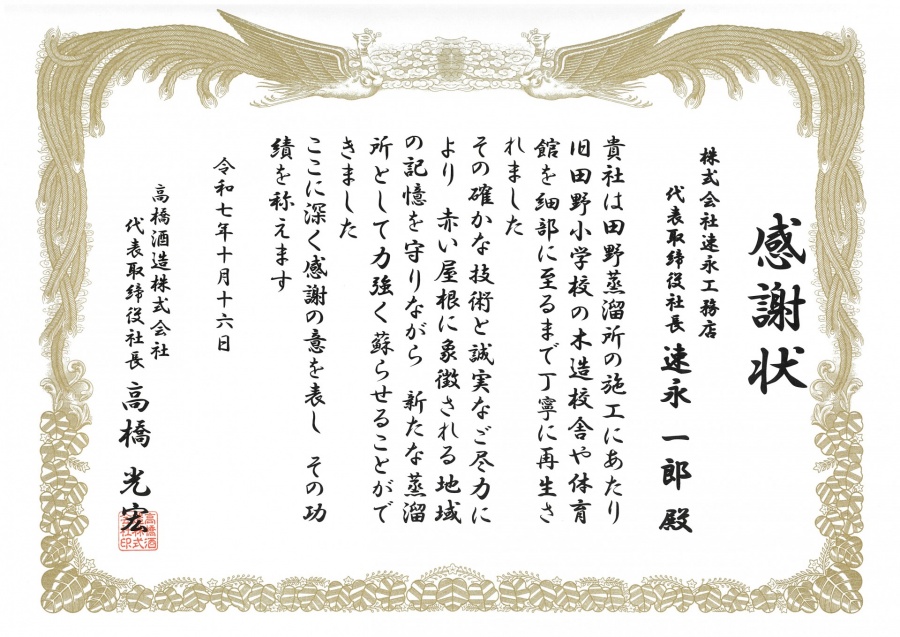 感謝状
株式会社速永工務店
代表取締役社長 速永 一郎 殿
貴社は田野蒸溜所の施工にあたり
旧田野小学校の木造校舎や体育
館を細部に至るまで丁寧に再生さ
れました
その確かな技術と誠実なご尽力に
より 赤い屋根に象徴される地域
の記憶を守りながら 新たな蒸溜
所として力強く蘇らせることがで
きました
ここに深く感謝の意を表し その功
績を称えます
令和七年十月十六日
高橋酒造株式会社
代表取締役社長 高橋 光宏